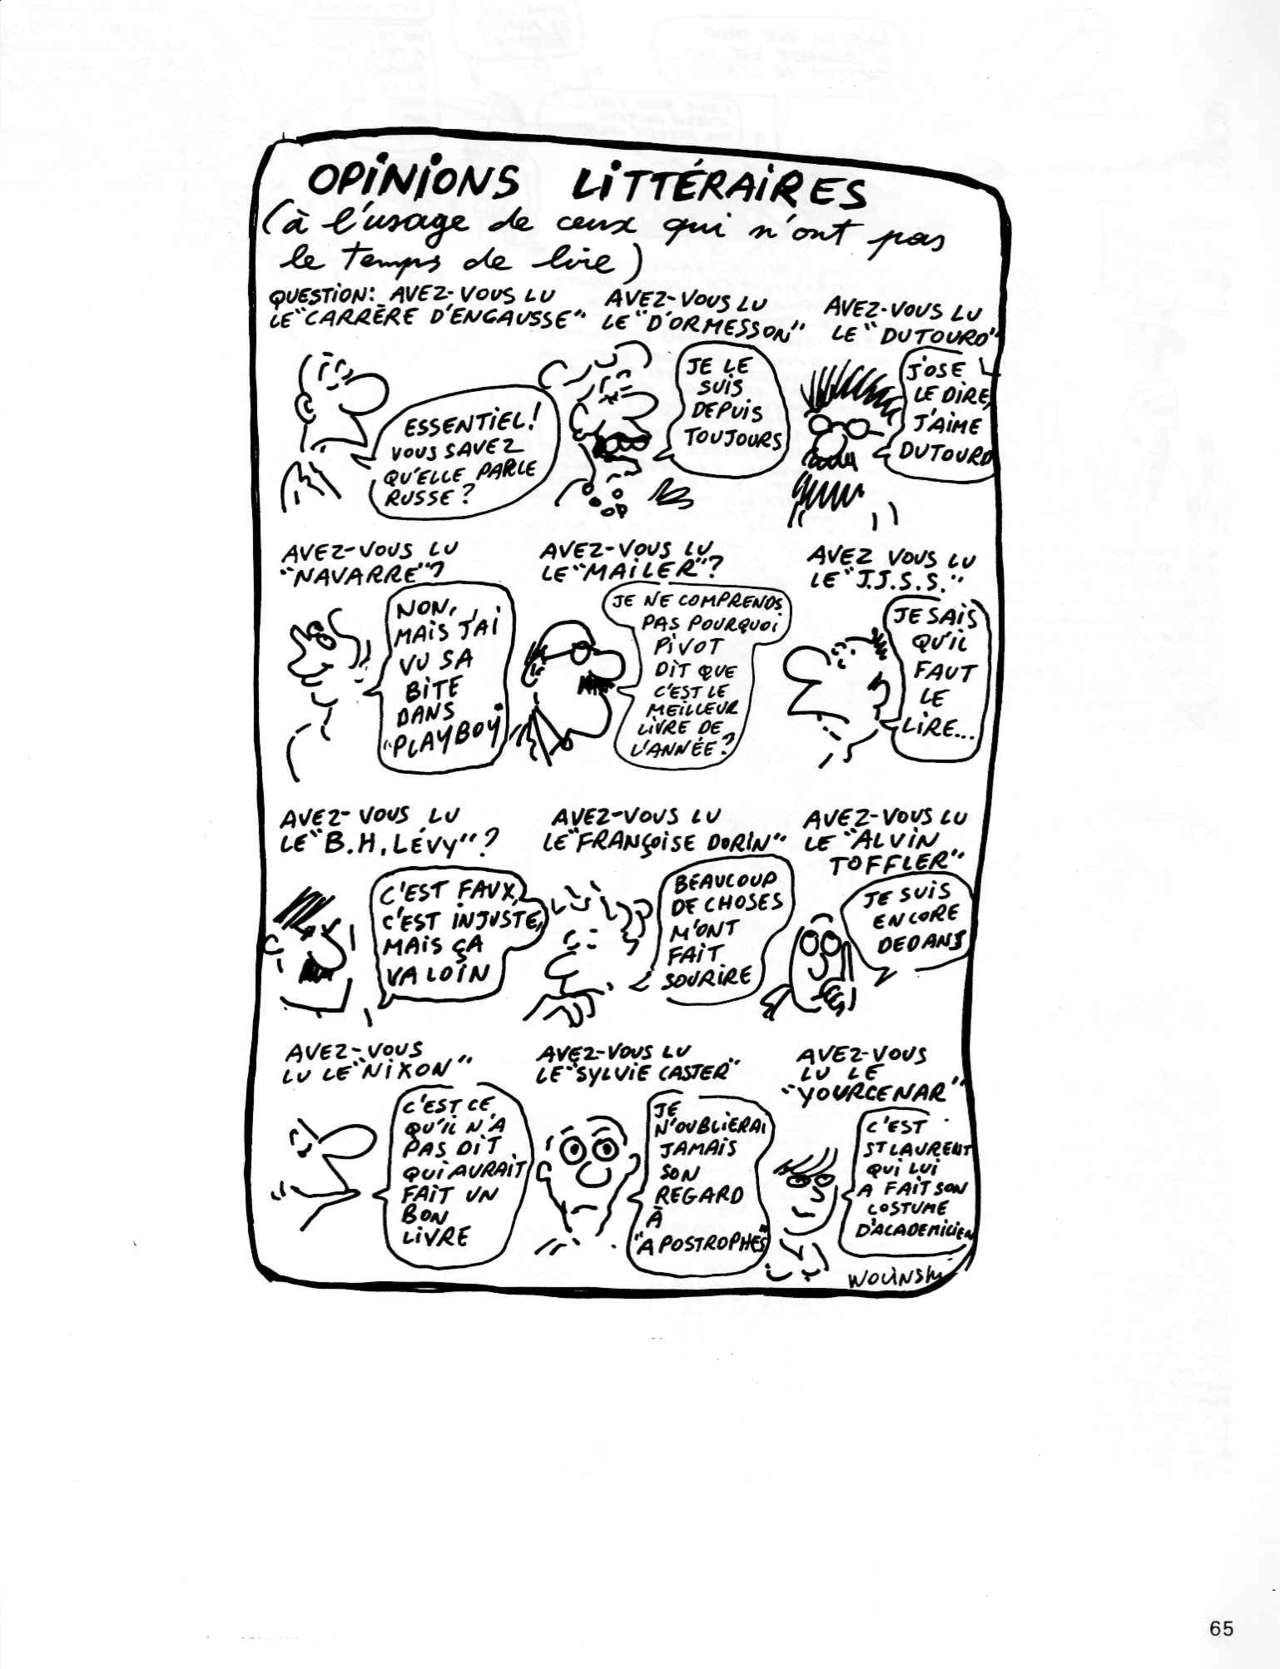 OPINIONS LITTÉRAIRES
(à l'usage de ceux qui n'ont pas
le temps de lire)
QUESTION: AVEZ-VOUS LU
LE "CARRÈRE D'ENCAUSSE"
ESSENTIEL!
VOUS SAVEZ
QU'ELLE PARLE
RUSSE?
AVEZ-VOUS LU
LE "D'ORMESSON"
JE LE
SUIS
DEPUIS
TOUJOURS
AVEZ-VOUS LU
LE "DUTOURD"
J'OSE
LE DIRE,
J'AIME
DUTOURD
AVEZ-VOUS LU
"NAVARRE"?
NON,
MAIS J'AI
VU SA
BITE
DANS
"PLAYBOY"
AVEZ-VOUS LU
LE "MAILER"?
JE NE COMPRENDS
PAS POURQUOI
PIVOT
DIT QUE
C'EST LE
MEILLEUR
LIVRE DE
L'ANNÉE?
AVEZ VOUS LU
LE "J.J.S.S."
JE SAIS
QU'IL
FAUT
LE
LIRE...
AVEZ-VOUS LU
LE "B.H. LÉVY"?
C'EST FAUX,
C'EST INJUSTE,
MAIS ÇA
VA LOIN
AVEZ-VOUS LU
LE "FRANÇOISE DORIN"
BEAUCOUP
DE CHOSES
M'ONT
FAIT
SOURIRE
AVEZ-VOUS LU
LE "ALVIN
TOFFLER"
JE SUIS
ENCORE
DEDANS
AVEZ-VOUS
LU LE "NIXON"
C'EST CE
QU'IL N'A
PAS DIT
QUI AURAIT
FAIT UN
BON
LIVRE
AVEZ-VOUS LU
LE "SYLVIE CASTER"
JE
N'OUBLIERAI
JAMAIS
SON
REGARD
À
"APOSTROPHES"
AVEZ-VOUS
LU LE
"YOURCENAR"
C'EST
ST LAURENT
QUI LUI
A FAIT SON
COSTUME
D'ACADEMICIEN
WOLINSKI
65